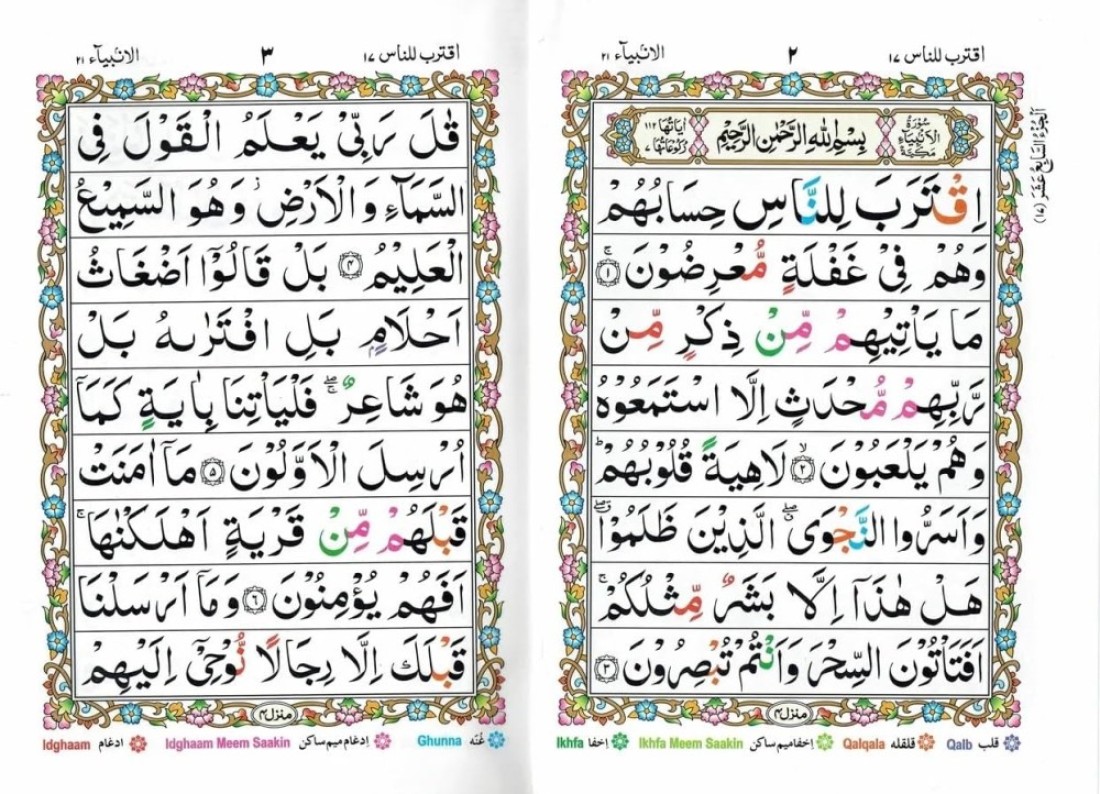 اقترب للناس ١٧
٢
الانبیآء ٢١
اَلْجُزْءُ السَّابِعُ عَشَرَ (١٧)
سُوْرَةُ الْاَنْبِيَآءِ مَكِّيَّةٌ
بِسْمِ اللّٰهِ الرَّحْمٰنِ الرَّحِيْمِ
اٰيَاتُهَا ١١٢
رُكُوْعَاتُهَا ٧
اِقْتَرَبَ لِلنَّاسِ حِسَابُهُمْ
وَهُمْ فِيْ غَفْلَةٍ مُّعْرِضُوْنَ ۚ ﴿١﴾
مَا يَاْتِيْهِمْ مِّنْ ذِكْرٍ مِّنْ
رَّبِّهِمْ مُّحْدَثٍ اِلَّا اسْتَمَعُوْهُ
وَهُمْ يَلْعَبُوْنَ ۙ ﴿٢﴾ لَاهِيَةً قُلُوْبُهُمْ ؕ
وَاَسَرُّوا النَّجْوَى ۖق الَّذِيْنَ ظَلَمُوْا ۖق
هَلْ هٰذَاۤ اِلَّا بَشَرٌ مِّثْلُكُمْ ۚ
اَفَتَاْتُوْنَ السِّحْرَ وَاَنْتُمْ تُبْصِرُوْنَ ﴿٣﴾
منزل ٤
قلب Qalb
قلقله Qalqala
اِخفا میم ساکن Ikhfa Meem Saakin
اِخفا Ikhfa
اقترب للناس ١٧
٣
الانبیآء ٢١
قٰلَ رَبِّيْ يَعْلَمُ الْقَوْلَ فِي
السَّمَآءِ وَالْاَرْضِ ؗ وَهُوَ السَّمِيْعُ
الْعَلِيْمُ ﴿٤﴾ بَلْ قَالُوْۤا اَضْغَاثُ
اَحْلَامٍ بَلِ افْتَرٰىهُ بَلْ
هُوَ شَاعِرٌ ۖۚ فَلْيَاْتِنَا بِاٰيَةٍ كَمَاۤ
اُرْسِلَ الْاَوَّلُوْنَ ﴿٥﴾ مَاۤ اٰمَنَتْ
قَبْلَهُمْ مِّنْ قَرْيَةٍ اَهْلَكْنٰهَا ۚ
اَفَهُمْ يُؤْمِنُوْنَ ﴿٦﴾ وَمَاۤ اَرْسَلْنَا
قَبْلَكَ اِلَّا رِجَالًا نُّوْحِيْۤ اِلَيْهِمْ
منزل ٤
غُنّه Ghunna
اِدغام میم ساکن Idghaam Meem Saakin
ادغام Idghaam